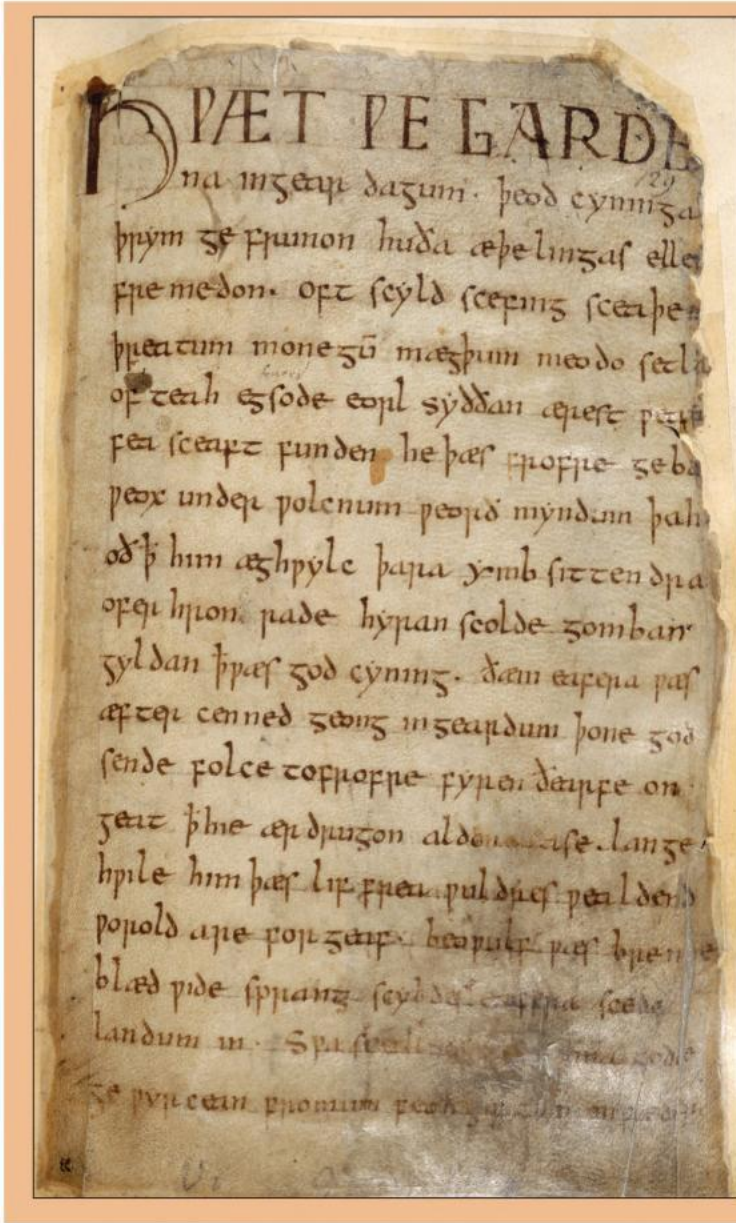 HǷÆT ǷE GARDE
129
na ingear dagum. þeod cyninga
þrym ge frunon huða æþelingas elle
fremedon. oft scyld scefing sceaþe
þreatum monegū mægþum meodo setla
of teah egsode eorl syððan ærest ƿear
fea sceaft funden he þæs frofre geba
ƿeox under ƿolcnum ƿeorð myndum þah
oð ꝥ him æghƿylc þara ymb sittendra
ofer hron rade hyran scolde gomban
gyldan ꝥ ƿæs god cyning. ðæm eafera ƿæs
æfter cenned geong ingeardum þone god
sende folce tofrofre fyren ðearfe on
geat ꝥ hie ær drugon lange
hƿile him þæs lif frea ƿuldres ƿealdend
ƿorold are for geaf. beoƿulf ƿæs breme
blæd ƿide sprang scyldes eafera scede
landum in. Sƿa sceal guma gode
ge ƿyrcean fromum feoh giftum